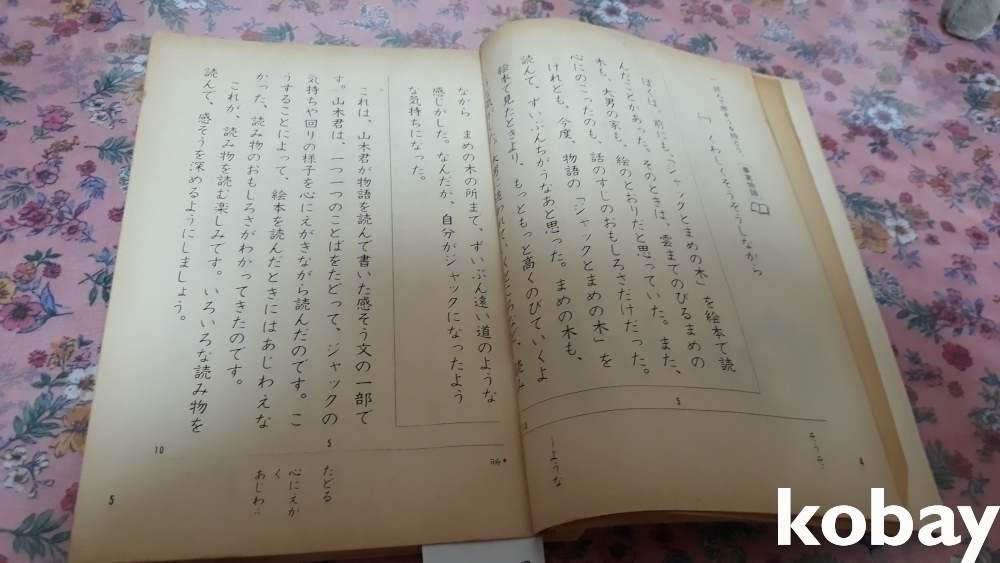 一 読んで感そうを持とう 事実物語
(一) くわしくそうぞうしながら
ぼくは、前にも、「ジャックとまめの木」を絵本で読
んだことがあった。そのときは、雲までのびるまめの
木も、大男の家も、絵のとおりだと思っていた。また、
心にのこったのも、話のすじのおもしろさだけだった。
けれども、今度、物語の「ジャックとまめの木」を
読んで、ずいぶんちがうなあと思った。まめの木も、
絵本で見たときより、もっともっと高くのびていくよ
大男に追われて
5
10
そうぞ
ーような
4
ながら、まめの木の所まで、ずいぶん遠い道のような
感じがした。なんだか、自分がジャックになったよう
な気持ちになった。
これは、山木君が物語を読んで書いた感そう文の一部で
す。山木君は、一つ一つのことばをたどって、ジャックの
気持ちや回りの様子を心にえがきながら読んだのです。こ
うすることによって、絵本を読んだときにはあじわえな
かった、読み物のおもしろさがわかってきたのです。
これが、読み物を読む楽しみです。いろいろな読み物を
読んで、感そうを深めるようにしましょう。
5
10
所
たどる
心にえが
く
あじわう
5
kobay